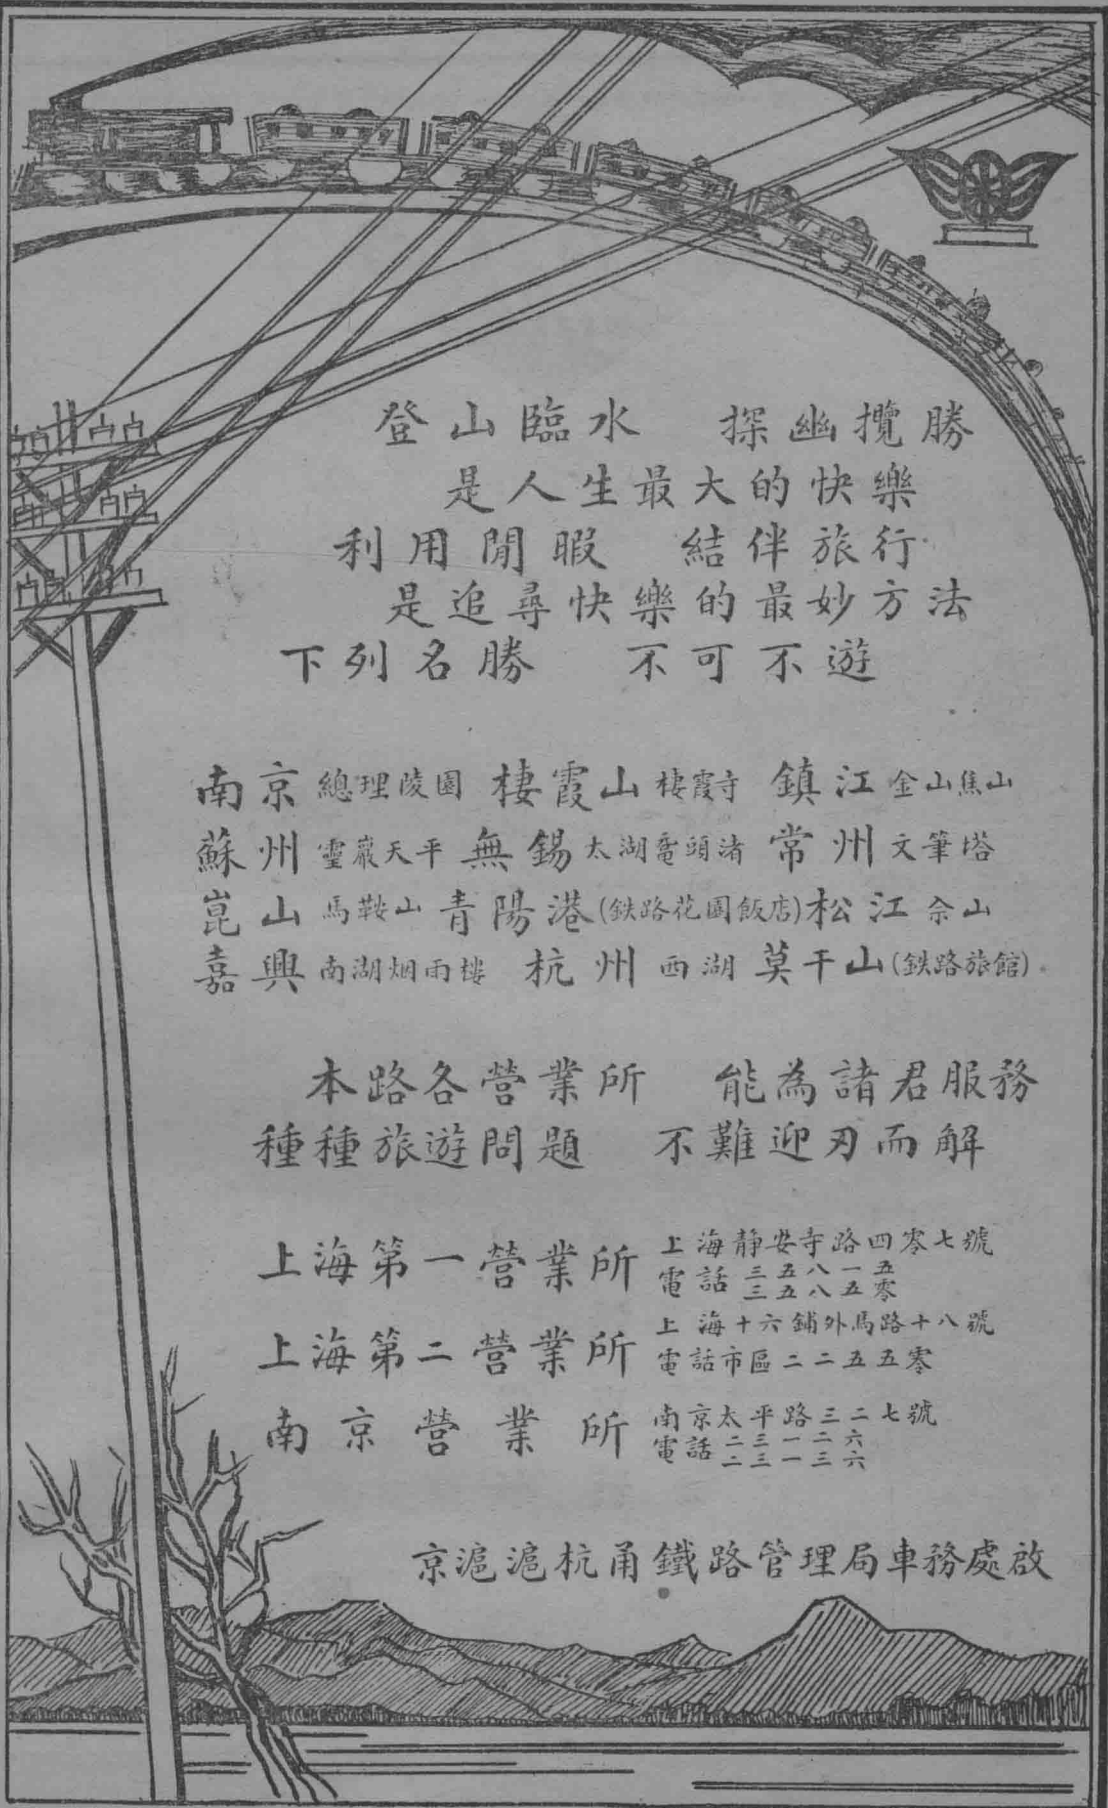 登山臨水　探幽攬勝
是人生最大的快樂
利用閒暇　結伴旅行
是追尋快樂的最妙方法
下列名勝　不可不遊
南京 總理陵園 棲霞山 棲霞寺 鎮江 金山焦山
蘇州 靈巖天平 無錫 太湖黿頭渚 常州 文筆塔
崑山 馬鞍山 青陽港(鉄路花園飯店) 松江 佘山
嘉興 南湖烟雨樓 杭州 西湖 莫干山(鉄路旅館)
本路各營業所　能為諸君服務
種種旅遊問題　不難迎刃而解
上海第一營業所 上海靜安寺路四零七號
電話 三五八一五
三五八五零
上海第二營業所 上海十六鋪外馬路十八號
電話市區二二五五零
南京營業所 南京太平路三二七號
電話 二三一二六
二三一三六
京滬滬杭甬鐵路管理局車務處啟